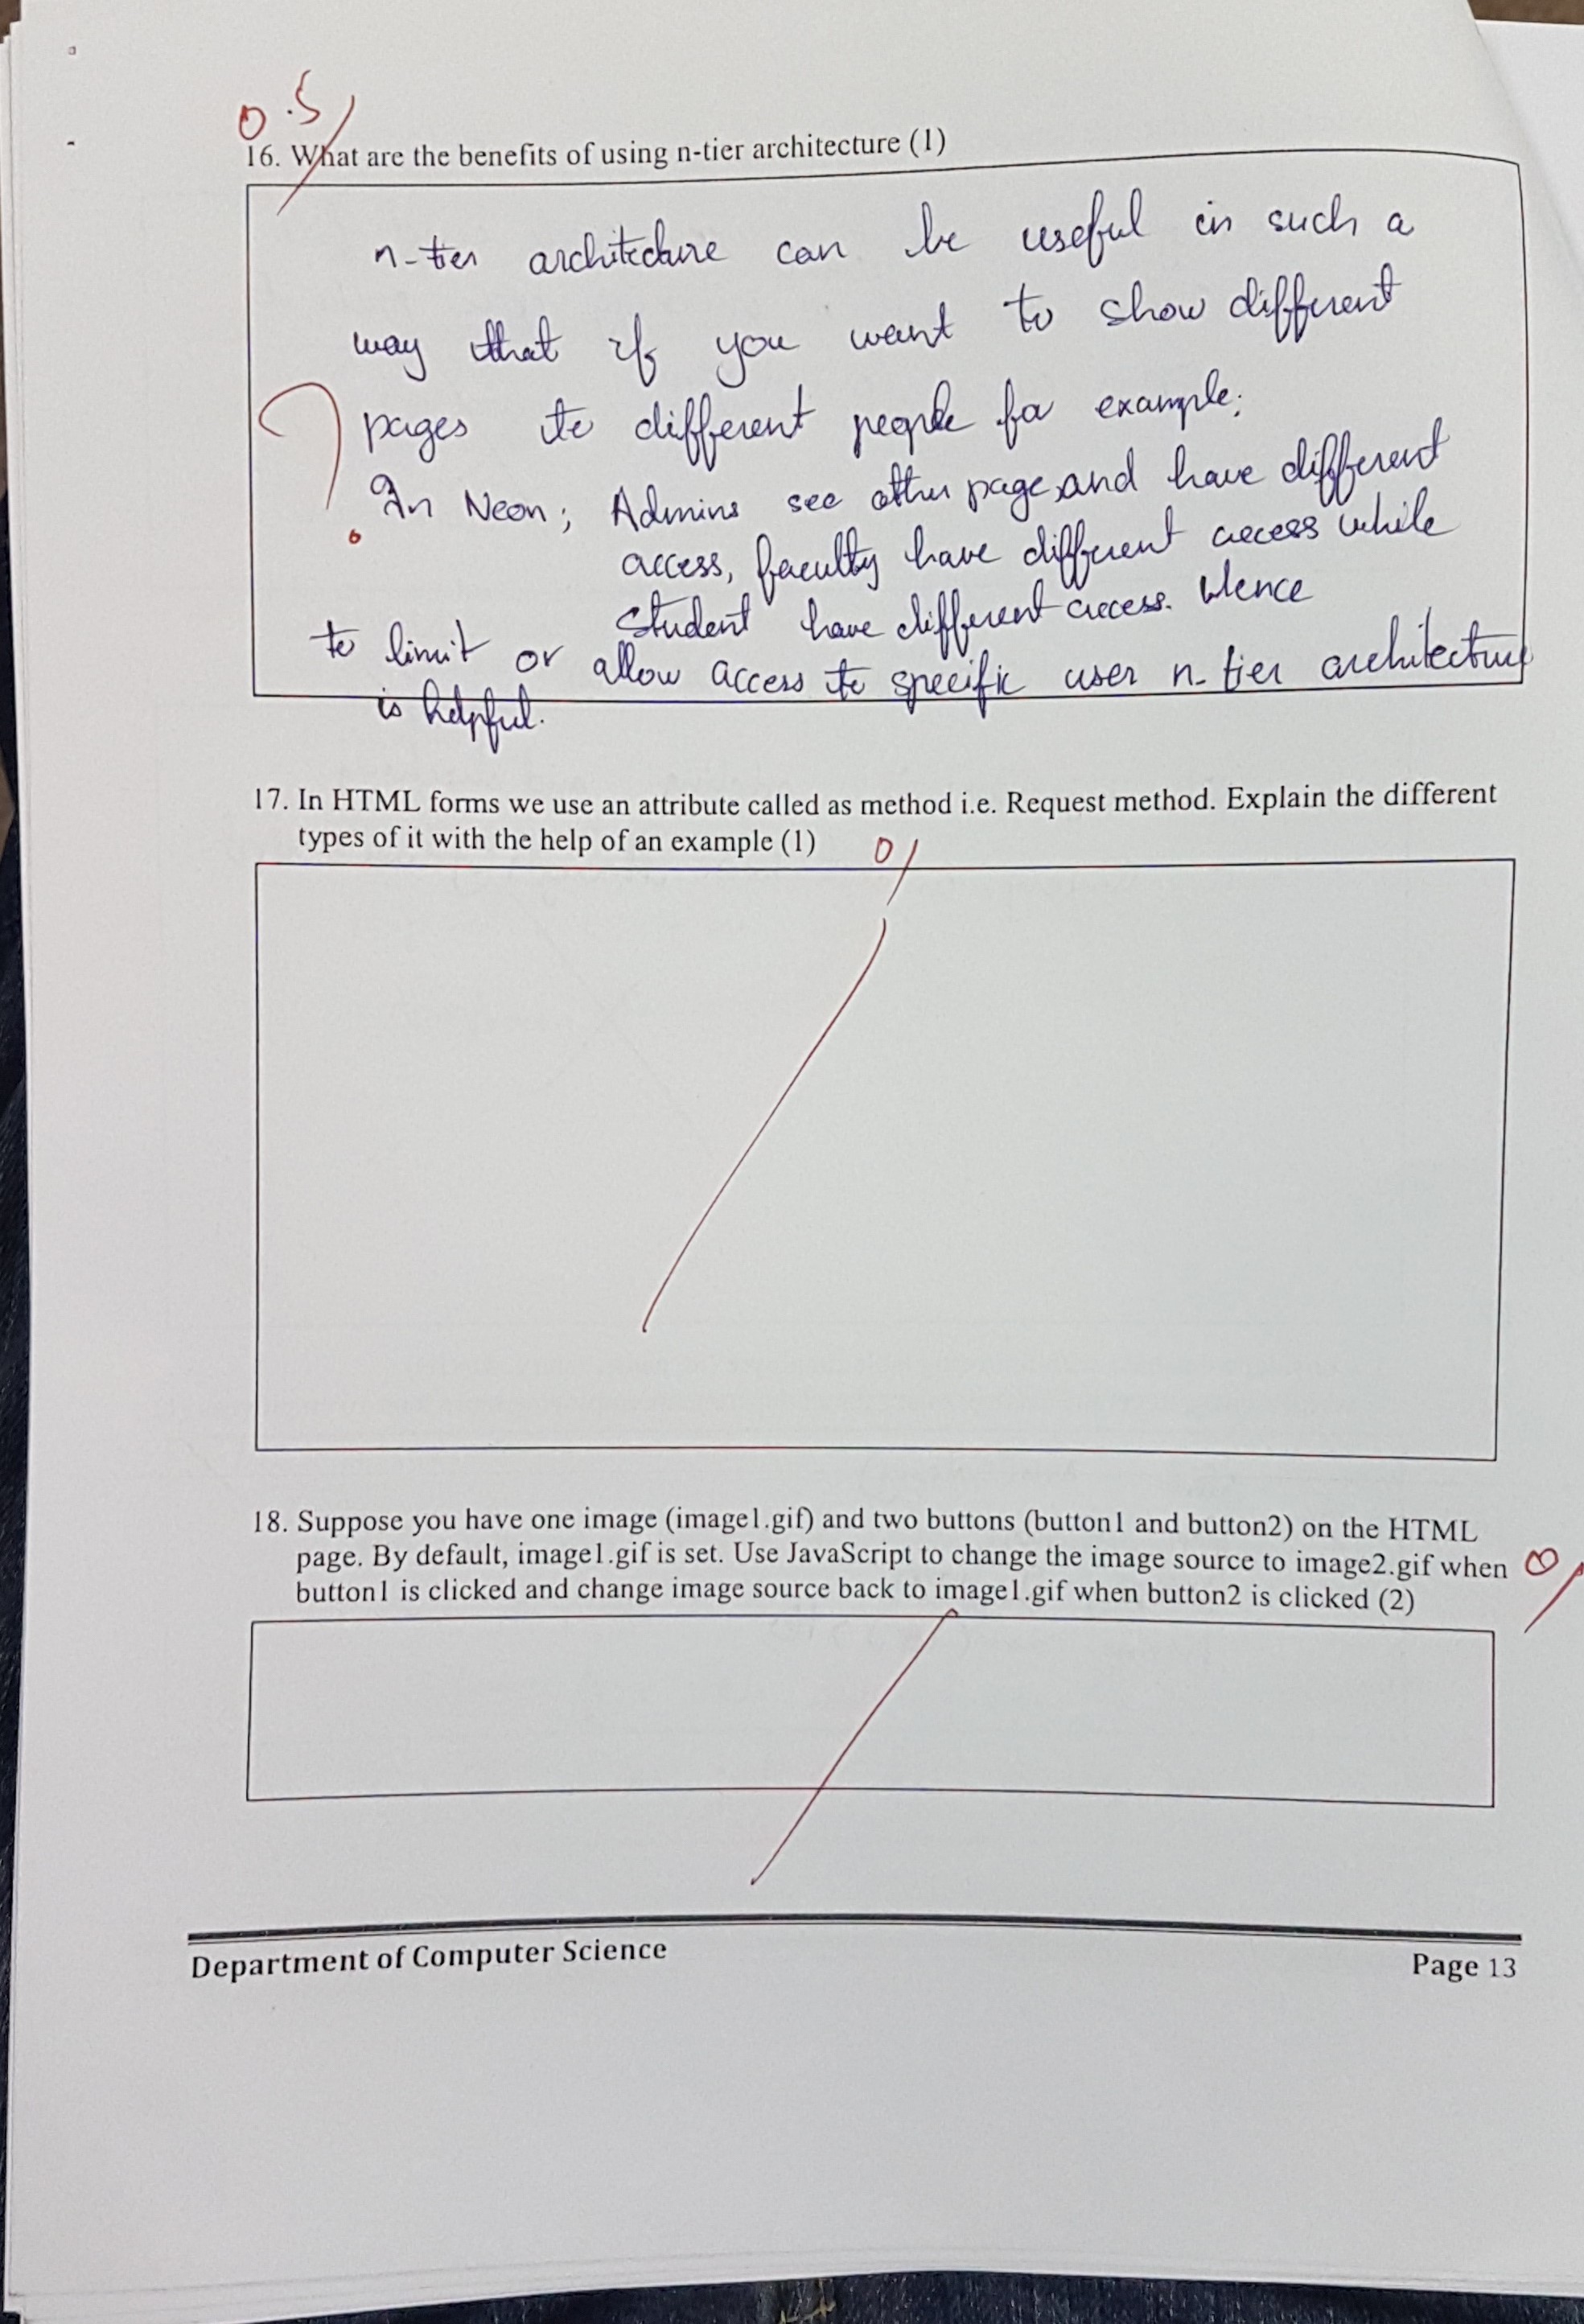 0.5/
16. What are the benefits of using n-tier architecture (1)
n-tier architecture can be useful in such a
way that if you want to show different
pages to different people for example;
?
In Neon; Admins see other page and have different
access, faculty have different access while
student have different access. Hence
to limit or allow access to specific user n-tier architecture
is helpful.
17. In HTML forms we use an attribute called as method i.e. Request method. Explain the different
types of it with the help of an example (1)
0/
18. Suppose you have one image (image1.gif) and two buttons (button1 and button2) on the HTML
page. By default, image1.gif is set. Use JavaScript to change the image source to image2.gif when
button1 is clicked and change image source back to image1.gif when button2 is clicked (2)
0/
Department of Computer Science
Page 13